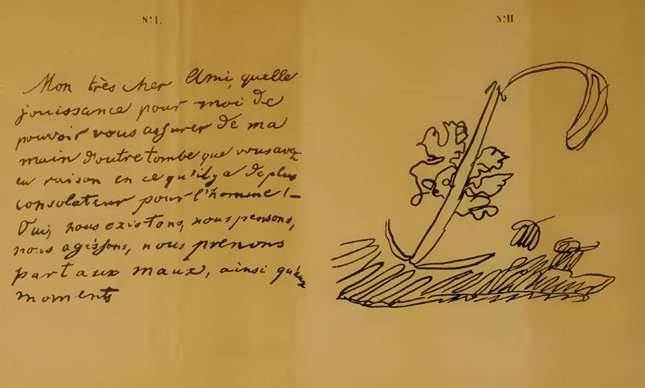 N.º I.
N.º II
Mon très cher Ami, quelle
jouissance pour moi de
pouvoir vous assurer de ma
main d'outre tombe que vous avez
eu raison en ce qu'il y a de plus
consolateur pour l'homme! —
Oui, nous existons, nous pensons,
nous agissons, nous prenons
part aux maux, ainsi qu'aux
moments